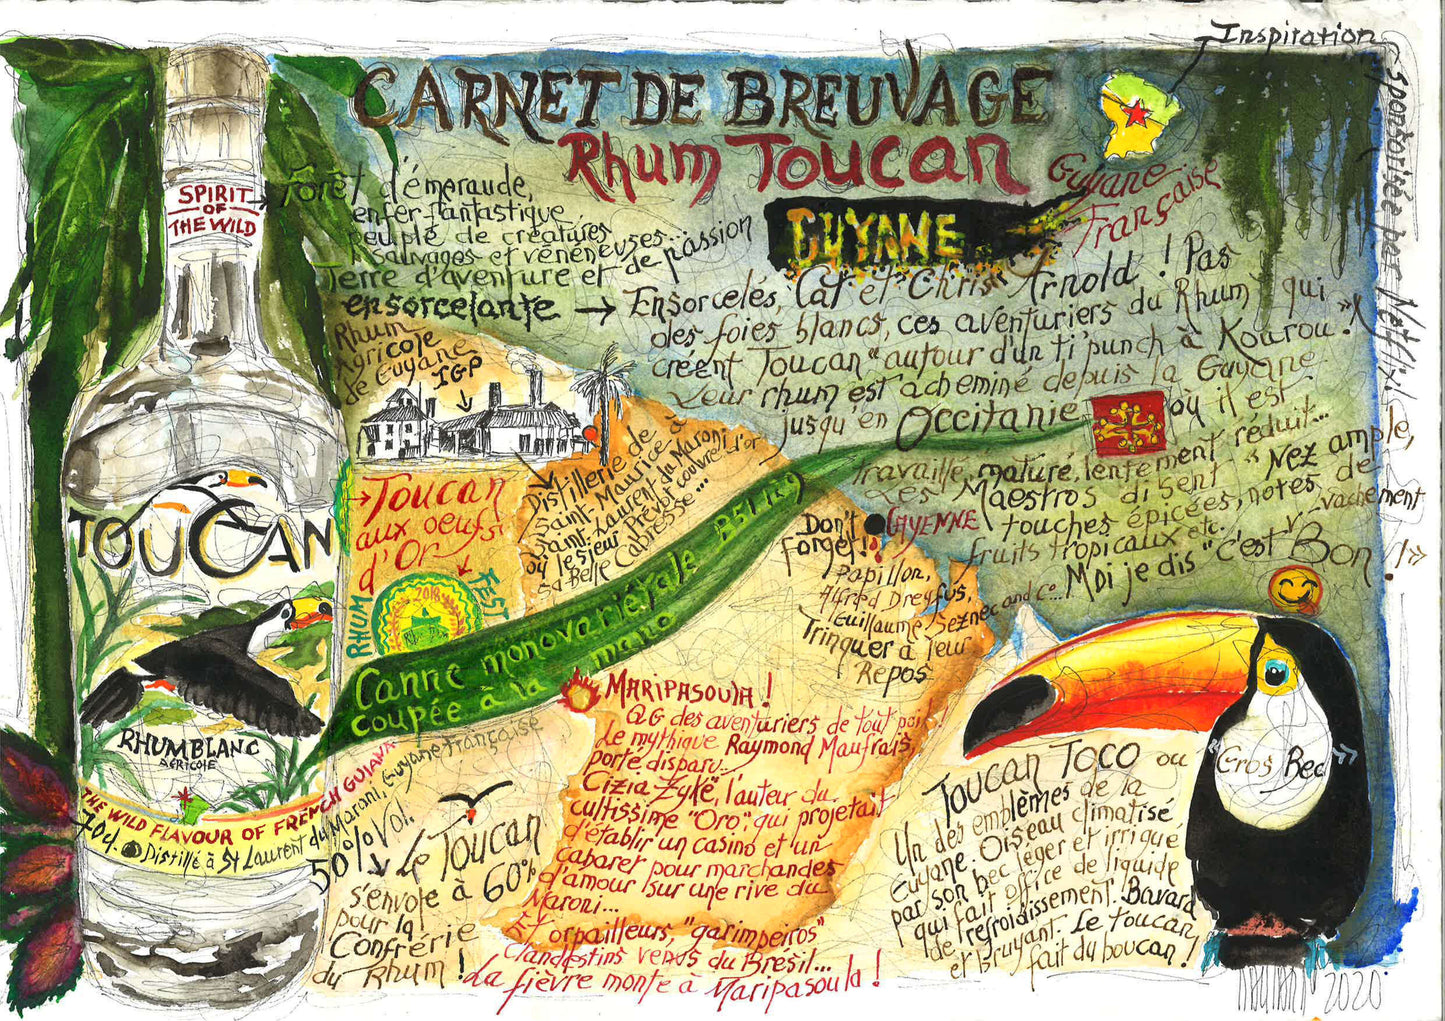 Inspiration
CARNET DE BREUVAGE
Rhum Toucan
GUYANE
Guyane
Française
sponsorisée par
SPIRIT
OF
THE WILD
Forêt d'émeraude,
enfer fantastique
peuplé de créatures
sauvages et vénéneuses...
Terre d'aventure et de passion
ensorcelante →
Ensorcelés, Cat et Chris Arnold ! Pas
des foies blancs, ces aventuriers du Rhum qui
créent "Toucan" autour d'un ti'punch à Kourou !
Leur rhum est acheminé depuis la Guyane
jusqu'en Occitanie où il est
travaillé, maturé, lentement réduit...
Les Maestros disent "Nez ample,
touches épicées, notes de
fruits tropicaux etc. vachement
Moi je dis "c'est Bon !"
Rhum
Agricole
de Guyane
IGP
Distillerie de
Saint-Maurice à
Saint-Laurent du Maroni
où le sieur Prévot couvre d'or
sa Belle Cabresse...
Toucan
aux oeufs
d'Or
RHUM
FEST
2018
Canne monovariétale
coupée à la main
Don't
forget!
CAYENNE
Papillon,
Alfred Dreyfus,
Guillaume Seznec and c°...
Trinquer à leur
Repos
TOUCAN
RHUM BLANC
AGRICOLE
THE WILD FLAVOUR OF FRENCH GUIANA
70cl. Distillé à St Laurent du Maroni, Guyane Française
50% Vol.
Le Toucan
s'envole à 60%
pour la
Confrérie
du Rhum !
MARIPASOULA !
QG des aventuriers de tout poil !
Le mythique Raymond Maufrais,
porté disparu...
Cizia Zykë, l'auteur du
cultissime "Oro", qui projetait
d'établir un casino et un
cabaret pour marchandes
d'amour sur une rive du
Maroni...
Et orpailleurs, "garimpeiros"
Clandestins venus du Brésil...
La fièvre monte à Maripasoula !
Toucan Toco ou
"Gros Bec"
Un des emblèmes de la
Guyane. Oiseau climatisé
par son bec léger et irrigué
qui fait office de liquide
de refroidissement. Bavard
et Bruyant. Le toucan
fait du boucan !
2020